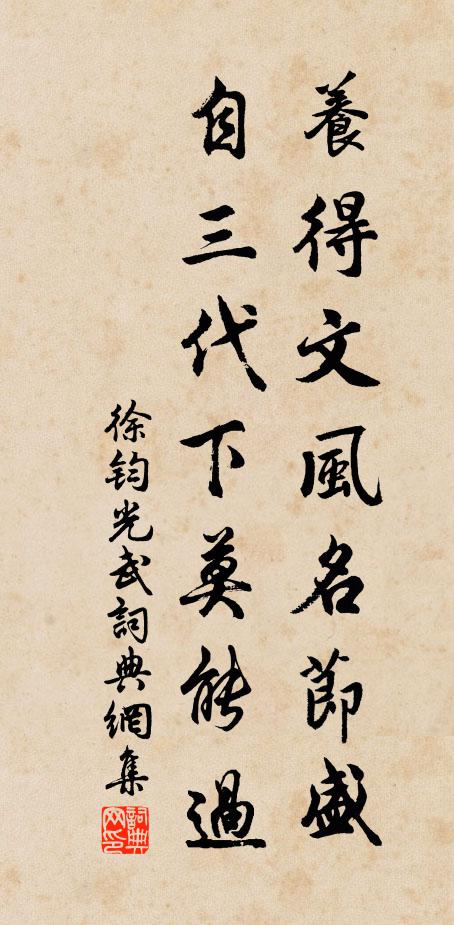 養得文風名節盛
自三代下莫能過
徐鈞光武詞典網集
詞典網印